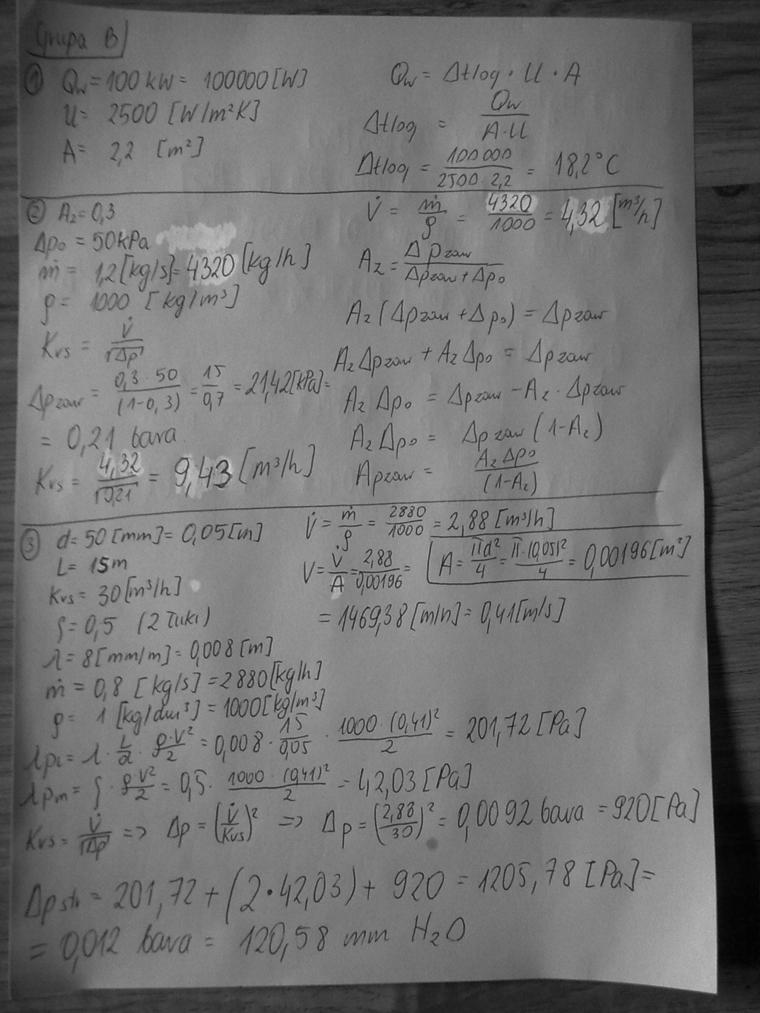 Grupa B
① Qw = 100 kW = 100000 [W]
U = 2500 [W/m²K]
A = 2,2 [m²]
Qw = Δtlog · U · A
Δtlog = Qw / A·U
Δtlog = 100 000 / 2500 · 2,2 = 18,2°C
② Az = 0,3
Δp₀ = 50 kPa
ṁ = 1,2 [kg/s] = 4320 [kg/h]
ρ = 1000 [kg/m³]
Kvs = V̇ / √Δp
Δpzaw = 0,3 · 50 / (1-0,3) = 15 / 0,7 = 21,42 [kPa] =
= 0,21 bara
Kvs = 4,32 / √0,21 = 9,43 [m³/h]
V̇ = ṁ / ρ = 4320 / 1000 = 4,32 [m³/h]
Az = Δpzaw / Δpzaw + Δp₀
Az (Δpzaw + Δp₀) = Δpzaw
Az Δpzaw + Az Δp₀ = Δpzaw
Az Δp₀ = Δpzaw - Az · Δpzaw
Az Δp₀ = Δpzaw (1-Az)
Δpzaw = Az Δp₀ / (1-Az)
③ d = 50 [mm] = 0,05 [m]
L = 15m
Kvs = 30 [m³/h]
ζ = 0,5 (2 łuki)
λ = 8 [mm/m] = 0,008 [m]
ṁ = 0,8 [kg/s] = 2880 [kg/h]
ρ = 1 [kg/dm³] = 1000 [kg/m³]
V̇ = ṁ / ρ = 2880 / 1000 = 2,88 [m³/h]
V = V̇ / A = 2,88 / 0,00196 =
A = πd² / 4 = π · (0,05)² / 4 = 0,00196 [m²]
= 1469,38 [m/h] = 0,41 [m/s]
Δpl = λ · L / d · ρ·V² / 2 = 0,008 · 15 / 0,05 · 1000 · (0,41)² / 2 = 201,72 [Pa]
Δpm = ζ · ρ·V² / 2 = 0,5 · 1000 · (0,41)² / 2 = 42,03 [Pa]
Kvs = V̇ / √Δp => Δp = (V̇ / Kvs)² => Δp = (2,88 / 30)² = 0,0092 bara = 920 [Pa]
Δpstr = 201,72 + (2 · 42,03) + 920 = 1205,78 [Pa] =
= 0,012 bara = 120,58 mm H₂O